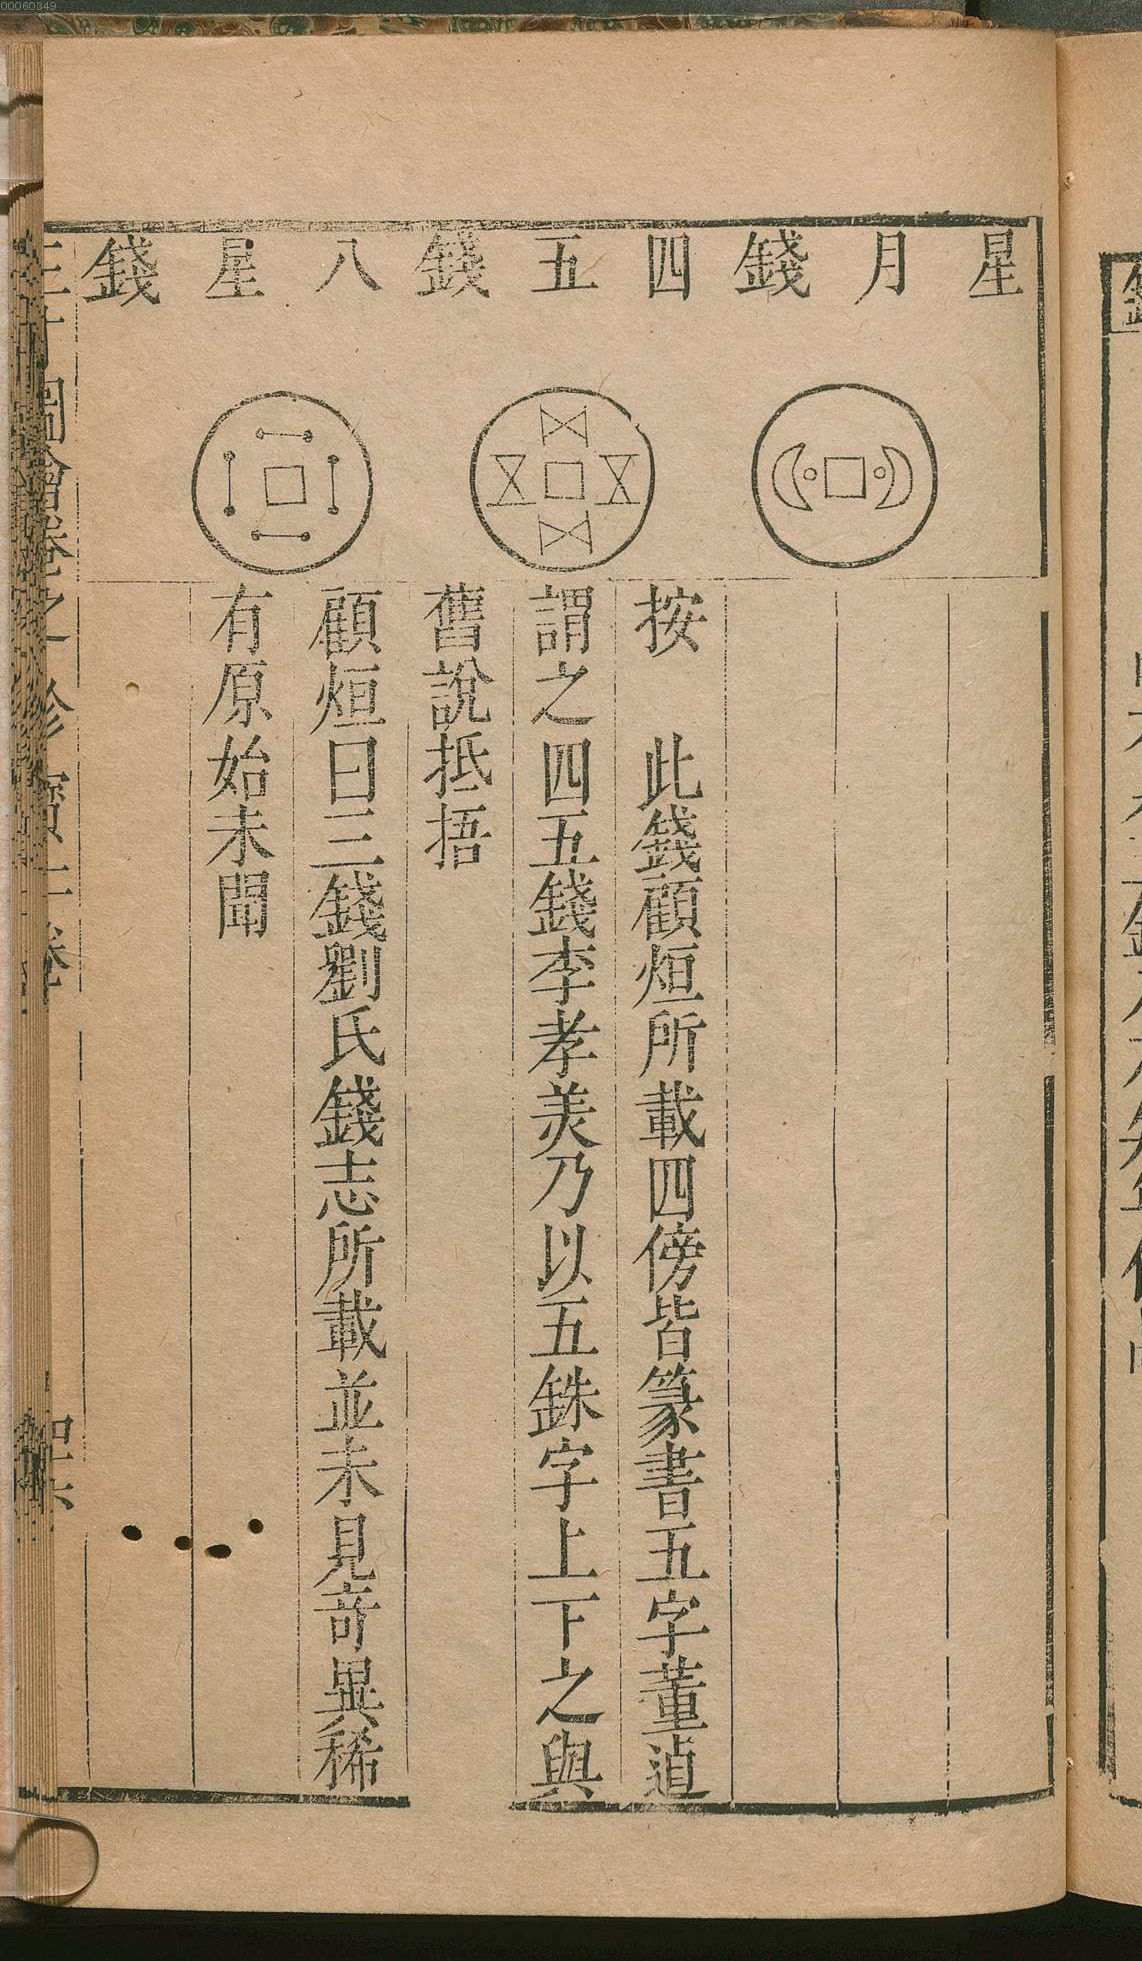 00060349
星月錢
四五錢
八星錢
按　此錢顧烜所載四傍皆篆書五字董逌
謂之四五錢李孝羙乃以五銖字上下之與
舊說抵捂
顧烜曰三錢劉氏錢志所載並未見竒異稀
有原始未聞
三才圖會卷之一珍寶一卷